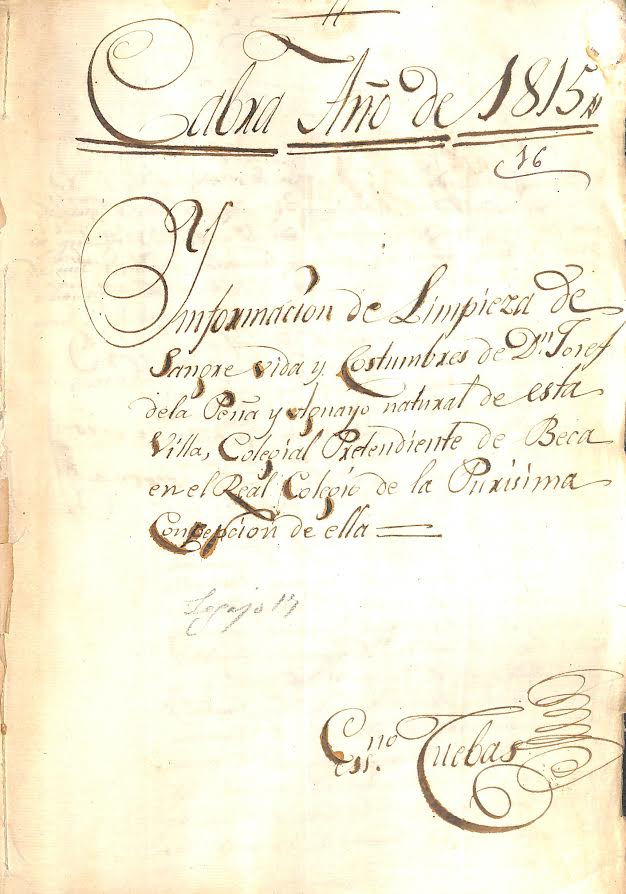 Cabra Año de 1815
16
Ynformacion de Limpieza de
Sangre vida y Costumbres de Dn Josef
dela Peña y Aguayo natural de esta
Villa, Colegial Pretendiente de Beca
en el Real Colegio de la Purisima
Concepcion de ella
Legajo 17
Essno Cuebas